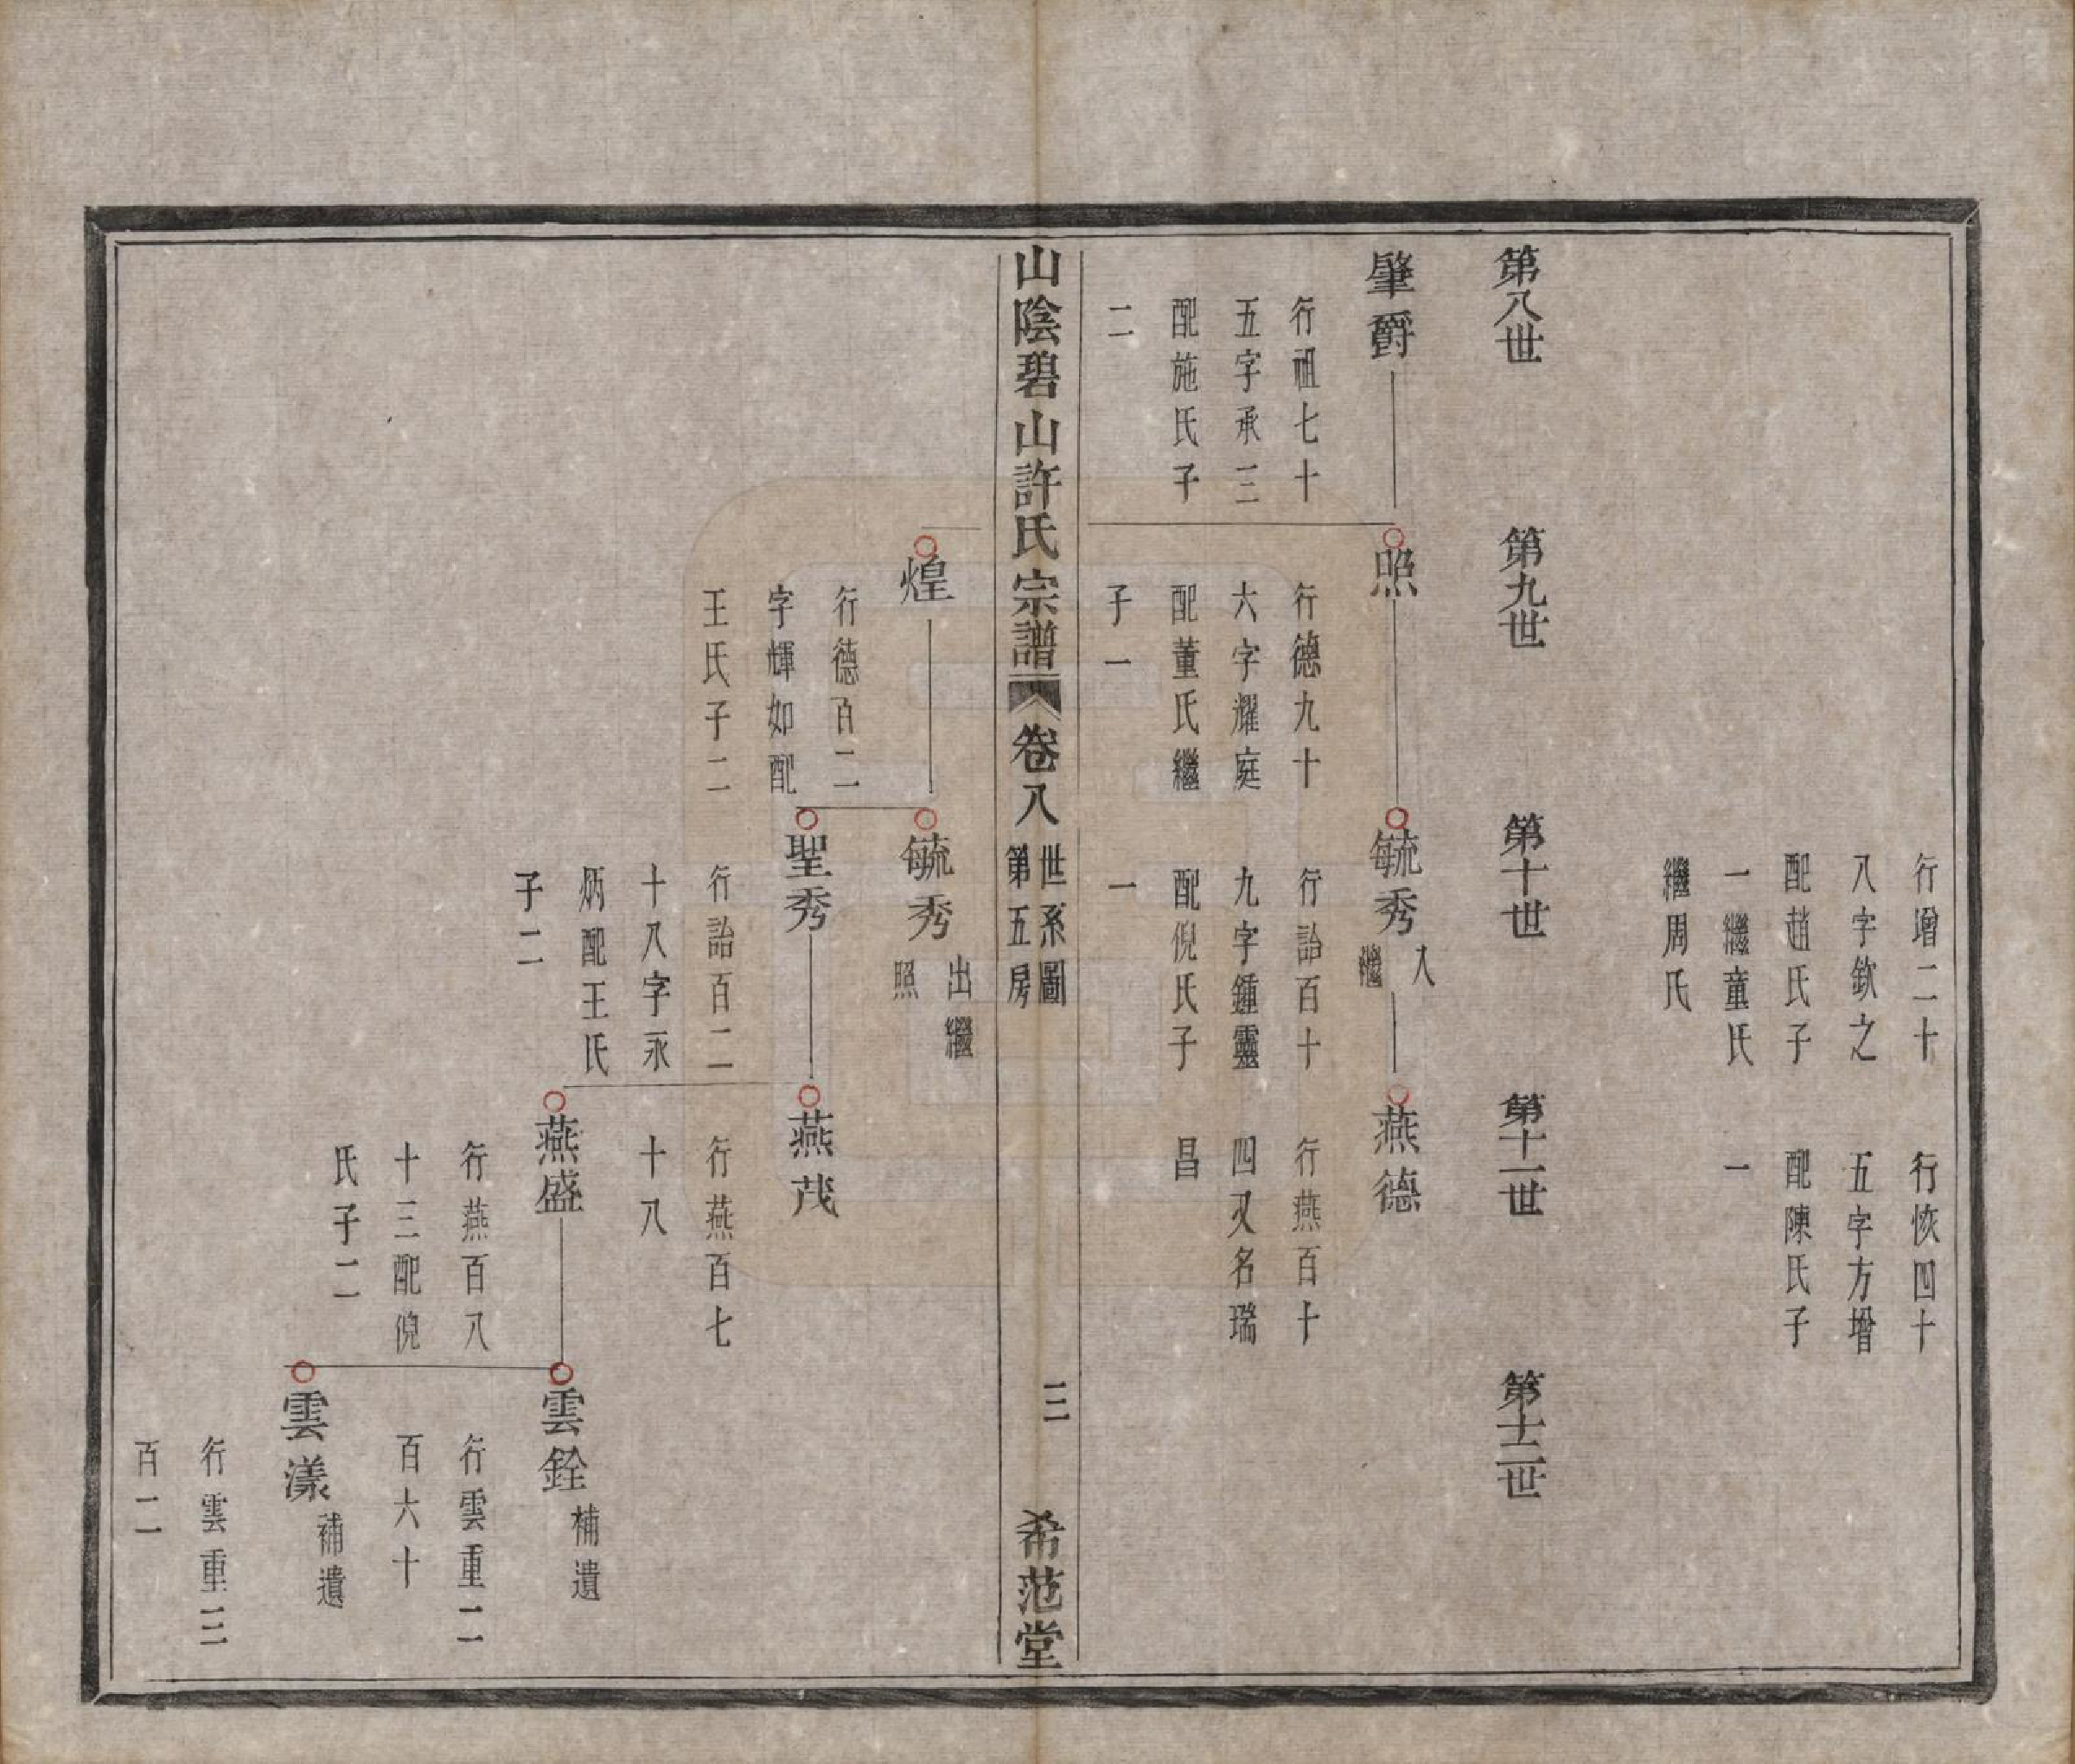 行增二十
八字欽之
配趙氏子
一繼童氏
繼周氏
行恢四十
五字方增
配陳氏子
一
第八世
第九世
第十世
第十一世
第十二世
肇爵
行祖七十
五字承三
配施氏子
二
照
行德九十
六字耀庭
配董氏繼
子一
毓秀
入
繼
行詒百十
九字鍾靈
配倪氏子
一
燕德
行燕百十
四又名瑞
昌
山陰碧山許氏宗譜
卷八
世系圖
第五房
三
希范堂
煌
行德百二
字輝如配
王氏子二
毓秀
出繼
照
聖秀
行詒百二
十八字永
炳配王氏
子二
燕茂
行燕百七
十八
燕盛
行燕百八
十三配倪
氏子二
雲銓
補遺
行雲重二
百六十
雲漾
補遺
行雲重三
百二